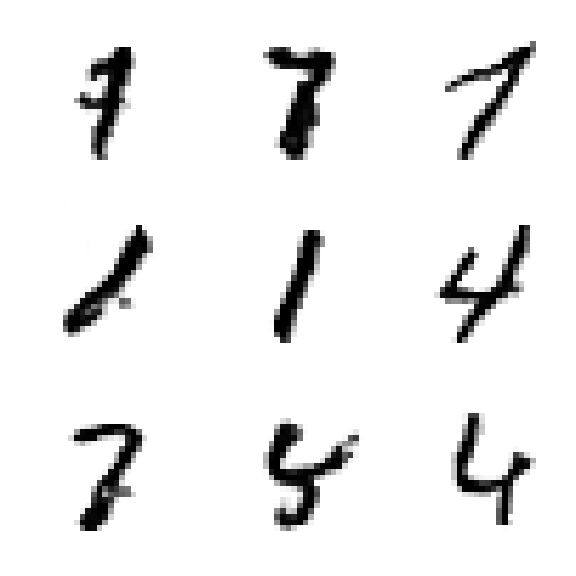 7 7 7
1 1 4
7 5 4